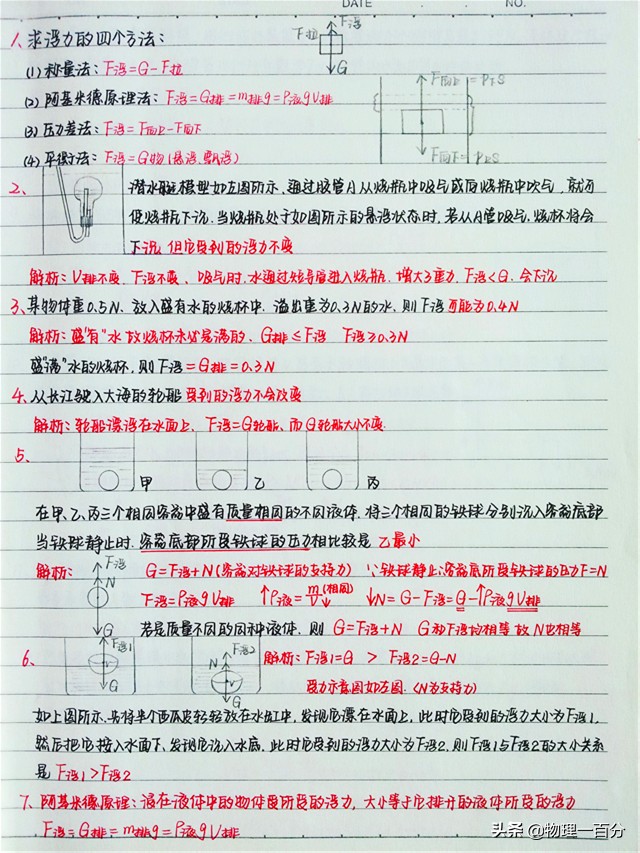 DATE NO.
1、求浮力的四个方法:
F浮
F拉
G
(1) 称量法: F浮=G-F拉
(2) 阿基米德原理法: F浮=G排=m排g=ρ液gV排
(3) 压力差法: F浮=F向上-F向下
(4) 平衡法: F浮=G物(悬浮、飘浮)
F向上=P下S
F向下=P上S
2、潜水艇模型如左图所示、通过胶管A从烧瓶中吸气或向烧瓶中吹气, 就可
使烧瓶下沉. 当烧瓶处于如图所示的悬浮状态时, 若从A管吸气, 烧杯将会
下沉, 但它受到的浮力不变
解析: V排不变、F浮不变、吸气时, 水通过短导管进入烧瓶, 增大了重力, F浮<G, 会下沉
3、某物体重0.5N、放入盛有水的烧杯中, 溢出重为0.3N的水、则F浮可能为0.4N
解析: 盛"有"水 故烧杯未必是满的、G排≤F浮 F浮≥0.3N
盛"满"水的烧杯, 则F浮=G排=0.3N
4、从长江驶入大海的轮船 受到的浮力不会改变
解析: 轮船漂浮在水面上, F浮=G轮船、而G轮船大小不变.
5、
甲 乙 丙
在甲、乙、丙三个相同容器中盛有质量相同的不同液体, 将三个相同的铁球分别沉入容器底部
当铁球静止时, 容器底部所受铁球的压力相比较是 乙最小
解析: G=F浮+N(容器对铁球的支持力) ∵铁球静止∴容器底所受铁球的压力F=N
F浮
N
G
F浮=ρ液gV排 ↑ρ液=m/V↓(相同) ↓N=G-F浮=G-↑ρ液gV排
若是质量不同的同种液体, 则 G=F浮+N G和F浮均相等 故N也相等
6、
F浮1
G
F浮2
N
G
解析: F浮1=G > F浮2=G-N
受力示意图如左图. (N为支持力)
如上图所示、先将半个西瓜皮轻轻放在水缸中, 发现它漂在水面上, 此时它受到的浮力大小为F浮1,
然后把它按入水面下、发现它沉入水底, 此时它受到的浮力大小为F浮2, 则F浮1与F浮2的大小关系
是 F浮1>F浮2
7、阿基米德原理: 浸在液体中的物体受所受的浮力, 大小等于它排开的液体所受的重力
F浮=G排=m排g=ρ液gV排
头条 @物理一百分